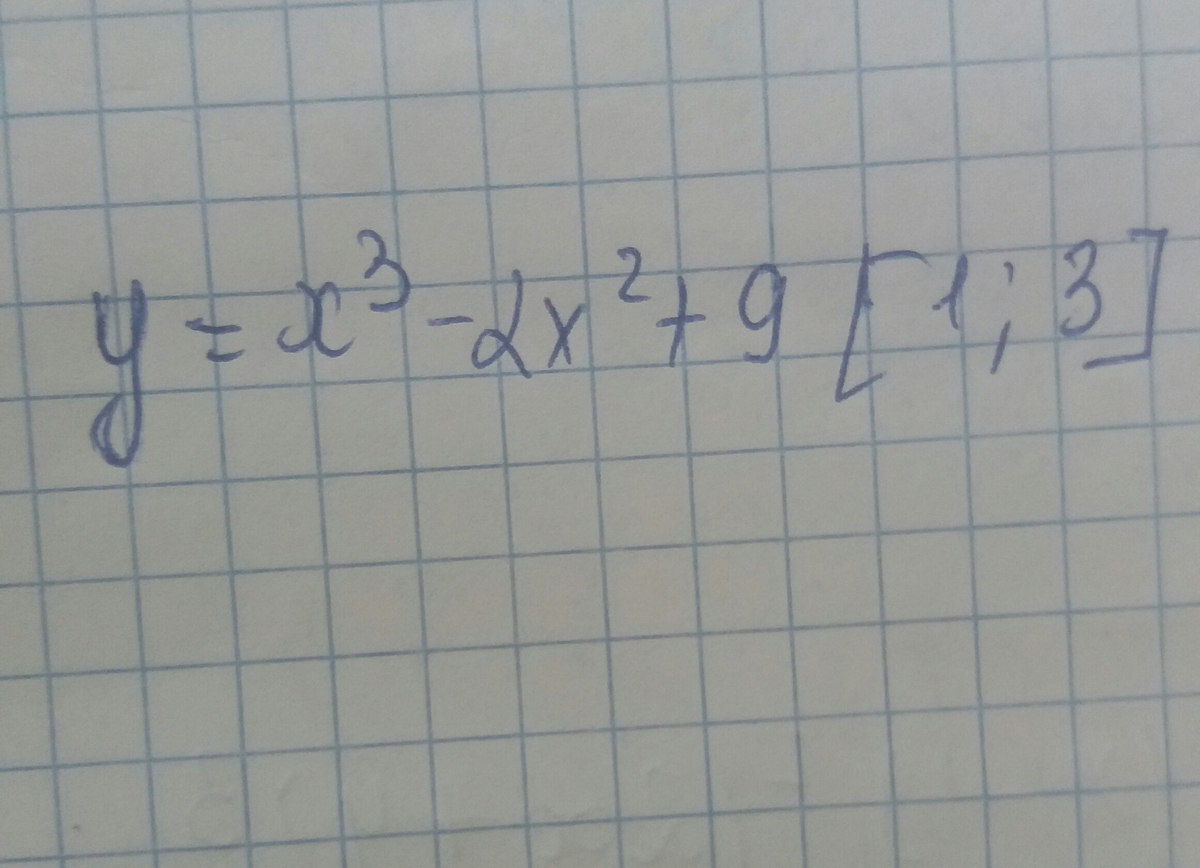 y = x³ - 2x² + 9 [1; 3]